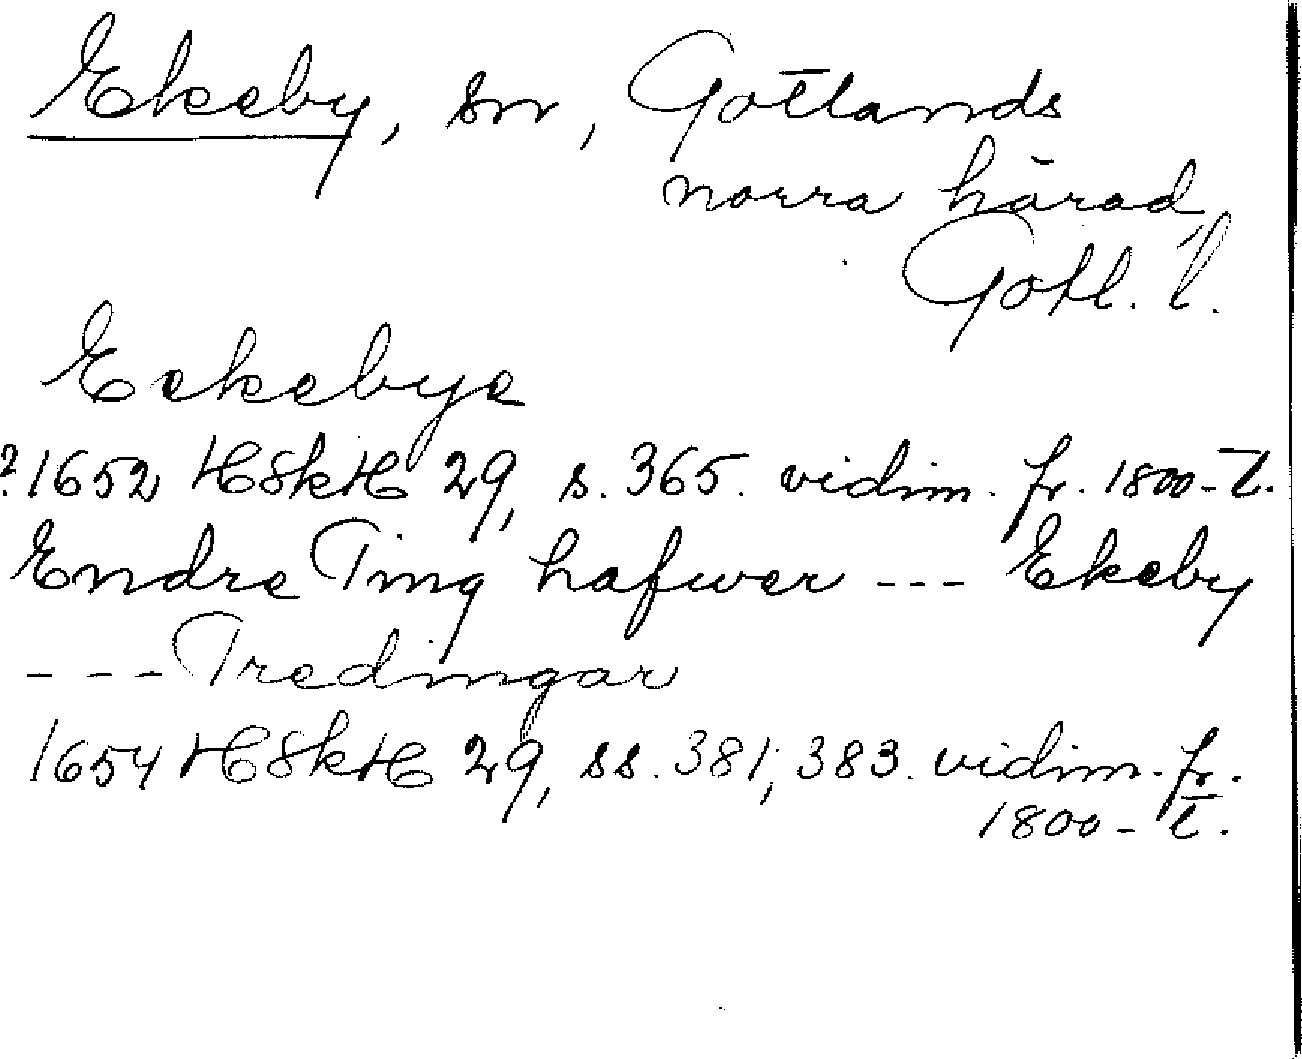 Ekeby, sn, Gotlands
norra härad,
Gotl. l.
Eekebye
? 1652 HSkH 29, s. 365. vidim. fr. 1800-t.
Endre Ting hafwer --- Ekeby
--- Tredingar
1654 HSkH 29, ss. 381, 383. vidim. fr.
1800-t.